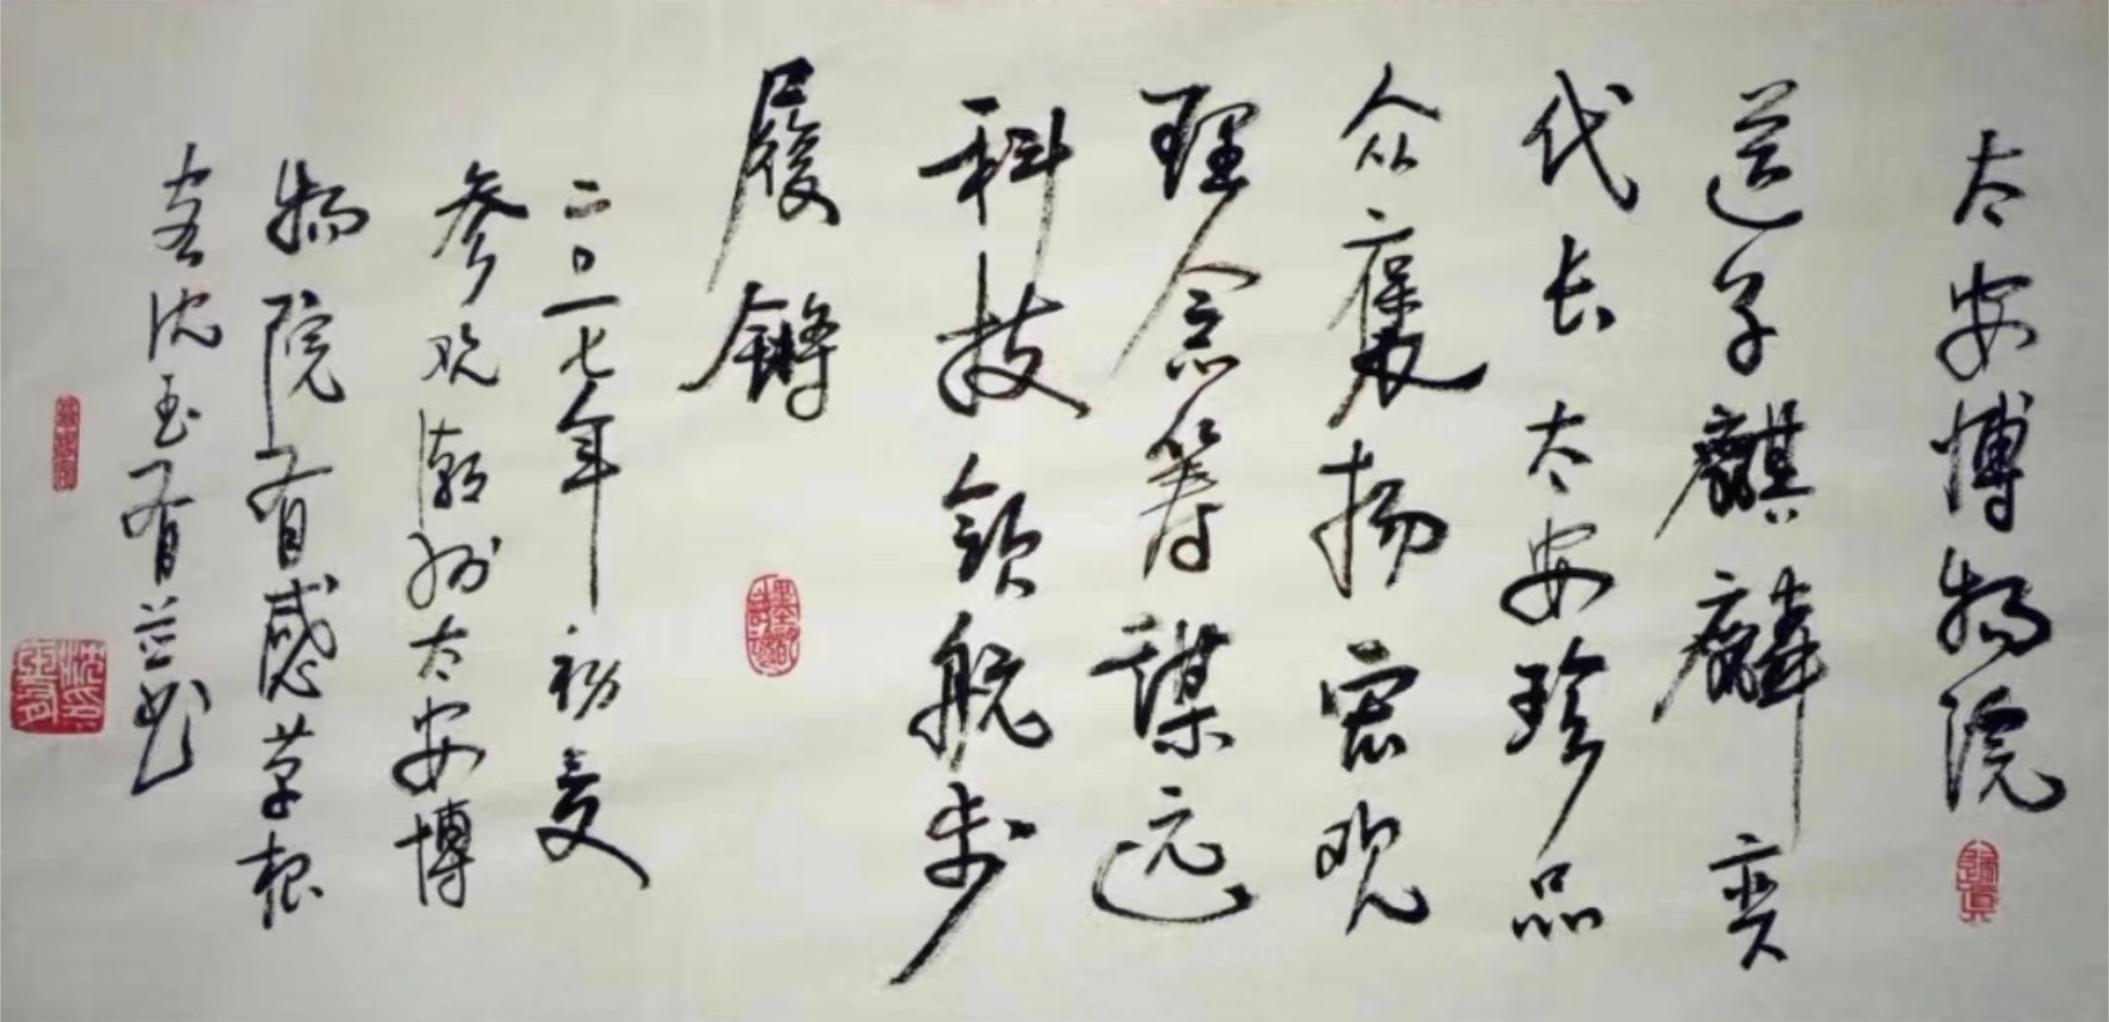 太安博物院
送子麒麟奕
代长太安珍品
众
扬宏观
理念筹谋远
科技领航步
履锵
二〇一七年初夏
参观潮州太安博
物院有感草根
沈亚有并书